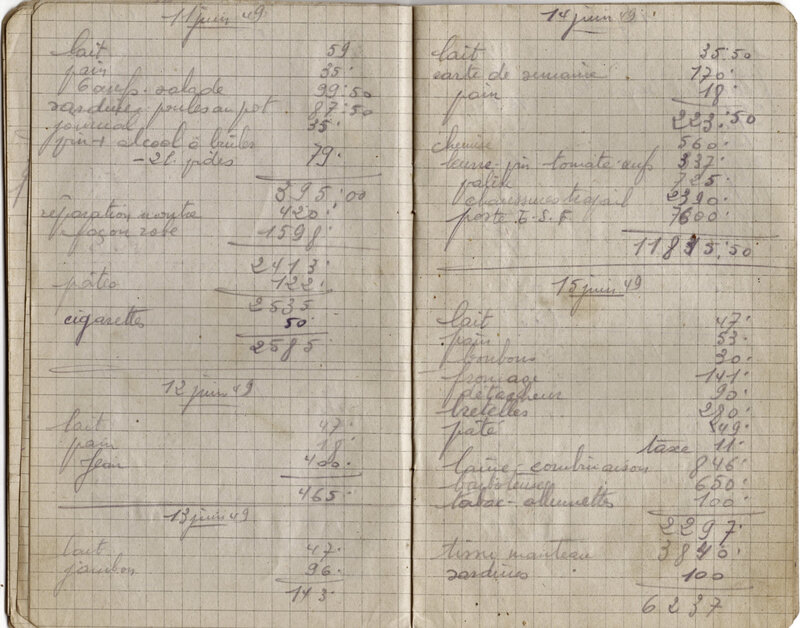 11 juin 49
lait 59
pain 35.
oeufs. salade 99:50
sardines. poules au pot. 87:50
journal 35.
alcool à brûler
- 2l. 79.
395,00
réparation montre 420.
façon robe 1598.
2413.
pâtes 122.
2535
cigarettes 50.
2585
12 juin 49
lait 47.
pain 18.
Jean 400.
465.
13 juin 49
lait 47.
jambon 96.
143.
14 juin 49.
lait 35:50
carte de semaine. 170.
pain 18.
223:50
chemise 560.
beurre. tomate. oeufs 337.
725.
chaussures travail 2390.
poste T.S.F. 7600.
11835:50
15 juin 49
lait 47.
pain 53.
bonbons 30.
fromage 141.
détacheur 90.
bretelles 280.
pâté 249.
taxe 11.
laine - combinaison 846.
650.
tabac - allumettes 100.
2297.
tissu manteau 3840.
sardines 100
6237